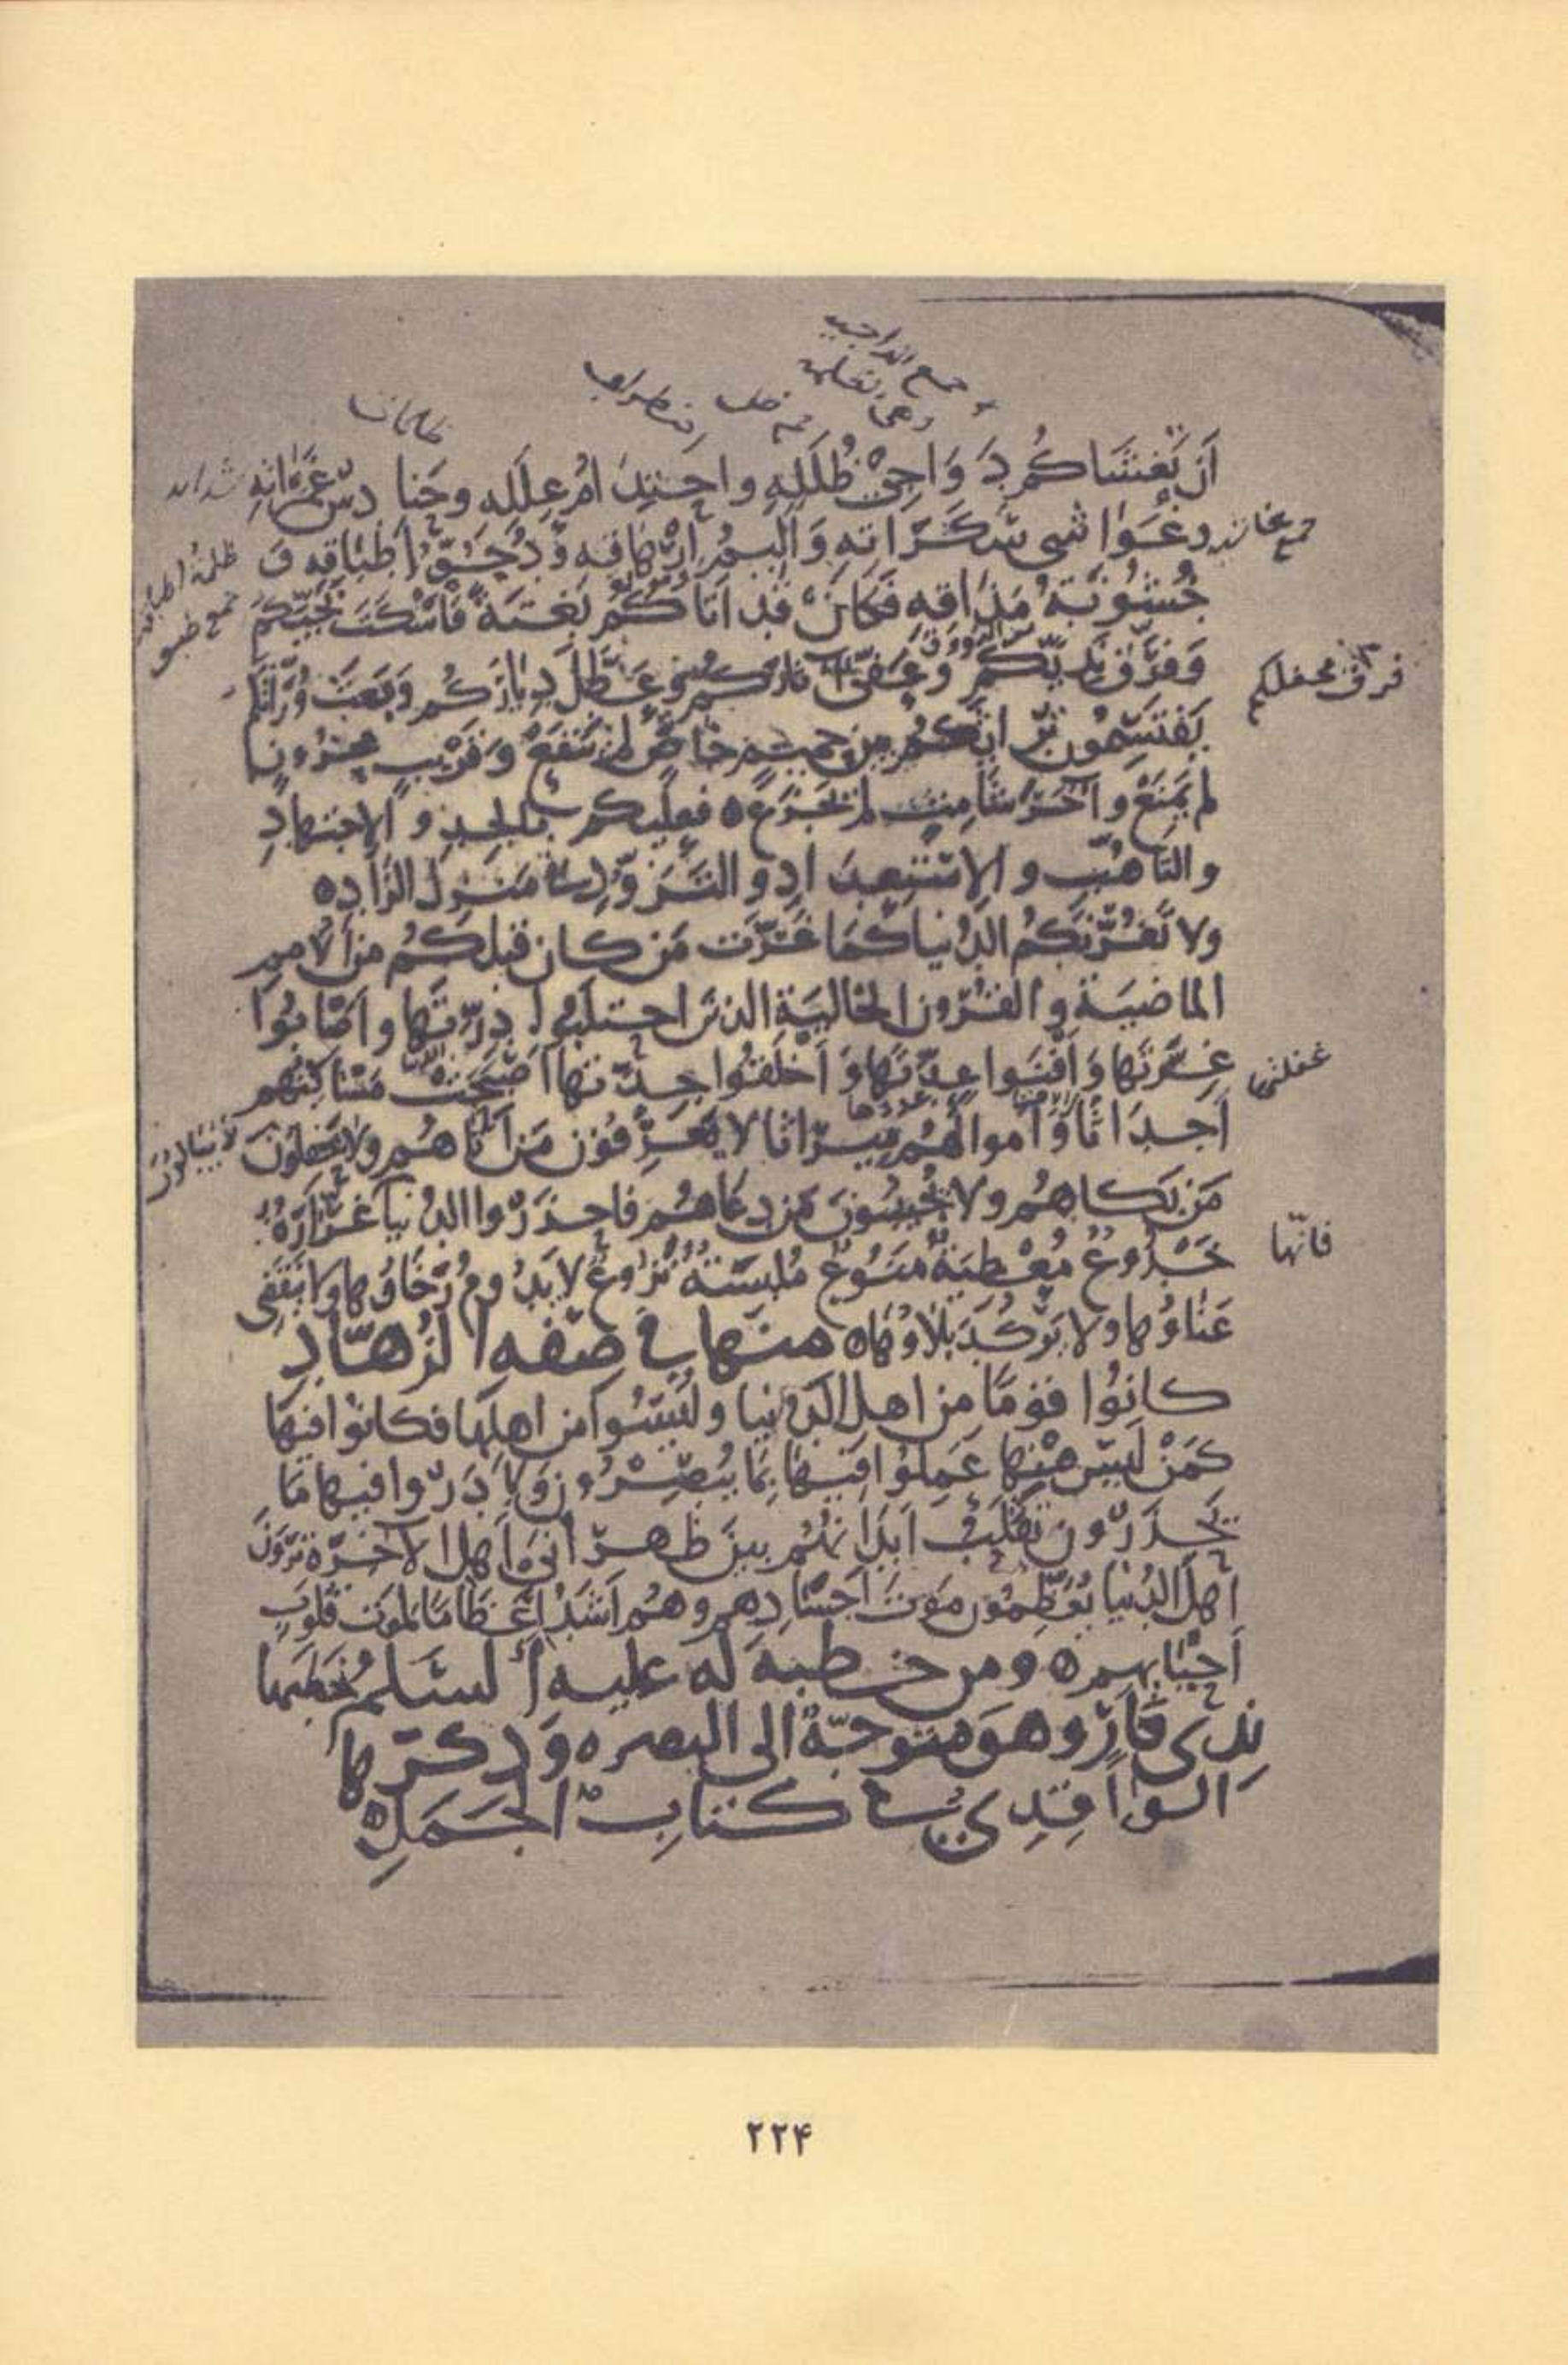 جمع الداجية
وهى الظلمة
اضطراب
ظلمات
اَن تَغشَاكُم دَوَاجِى ظُلَلِهِ واحتِدَامُ عِلَلِه وحَنادِسُ غَمَرَاتِهِ
شدايد
وغَوَاشى سَكَرَاتِهِ وَاَلِيمُ اِرْهَاقِه وَدُجُوُّ اَطبَاقِه وَ
خُشُونَةُ مَذَاقِه فَكَانْ قَد اَتَاكُم بَغتَةً فَاَسْكَتَ نَجِيَّكُم
وَفَرَّقَ نَدِيَّكُم وَعَفَّى آثارَكُم وَعَطَّلَ دِيَارَكُم وَبَعَثَ وُرَّاثَكُم
فرق محفلكم
يَقتَسِمُون تُرَاثَكُم بَين حَميمٍ خاصٍّ لم يَنفَعْ وَقَرِيبٍ محزُونٍ
لم يَمنَعْ وآخَرَ شَامِتٍ لم يَجزَعْ ه فعلَيكم بالجِدِّ والاِجتِهادِ
والتاهُّبِ والاِستِعدَادِ والتَزَوُّدِ فى مَنزِل الزَّادِ ه
ولا تَغُرَّنَّكُمُ الدُنيا كَمَا غَرَّت مَن كان قبلكُم من الاُمم
الماضيَة والقُرُون الخاليَة الذينَ احتَلَبُوا دِرَّتَها واَصَابُوا
غِرَّتَها وَاَفنَوا عِدَّتَها وَاَخْلَقُوا جِدَّتَها اَصْبَحَت مَسَاكِنُهم
غفلتها
اَجدَاثًا وَاَموالُهُم مِيرَاثًا لا يَعرِفُونَ مَن اَتَاهُم ولا يَحفلُونَ
لا يبالون
مَن بَكاهُم ولا يُجِيبُونَ مَن دعَاهُم فاحذَرُوا الدُنيا غَرَّارَةٌ
فانّها
خَدُوعٌ مُعْطِيَةٌ مَنُوعٌ مُلبِسَةٌ نَزُوعٌ لا يَدُومُ رَخَاؤُها ولا يَنقَضِى
عَنَاؤُها ولا يَركُدُ بَلاؤُهَا ه منها فى صفه الزُهّادِ
كانُوا قومًا من اهل الدُنيا ولَيسُوا من اهلِها فكانُوا فيها
كَمَنْ لَيسَ مِنها عَمِلُوا فيها بِمَا يُبصِرُونَ وَبادَرُوا فيها مَا
يَحذَرُونَ تَقَلَّبُ اَبدَانُهُم بينَ ظَهرَانَى اَهلِ الاخرَة يَرَونَ
اَهلَ الدُنيا يُعَظِّمُون مَوتَ اَجسَادِهم وهُم اَشَدُّ اِعظَامًا لموت قُلوبِ
اَحيَائِهم ه ومن خطبة لَه عليه السَلم خطبها
بِذى قارٍ وهوَ متوجّهٌ الى البصره وَذكرَها
الواقِدِى فى كتابِ الجَمَلِ ه
۲۲۴